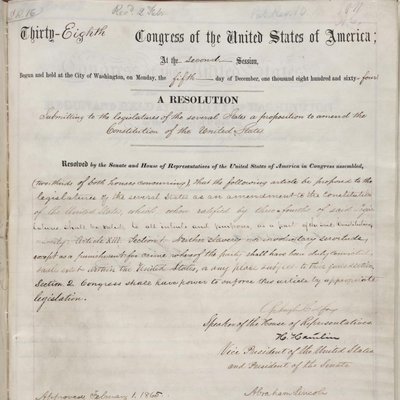 Thirty-Eighth Congress of the United States of America;
At the second Session,
Begun and held at the City of Washington, on Monday, the fifth day of December, one thousand eight hundred and sixty-four
A RESOLUTION
Submitting to the legislatures of the several States a proposition to amend the
Constitution of the United States
Resolved by the Senate and House of Representatives of the United States of America in Congress assembled,
(two thirds of both houses concurring), That the following article be proposed to the
legislatures of the several States as an amendment to the Constitution
of the United States, which, when ratified by three fourths of said
shall be valid, to all intents and purposes, as a part of the said Constitution,
namely: Article XIII. Section 1. Neither slavery nor involuntary servitude,
except as a punishment for crime whereof the party shall have been duly convicted,
shall exist within the United States, or any place subject to their jurisdiction.
Section 2. Congress shall have power to enforce this article by appropriate
legislation.
Schuyler Colfax
Speaker of the House of Representatives
H. Hamlin
Vice President of the United States
and President of the Senate
Approved February 1, 1865.
Abraham Lincoln